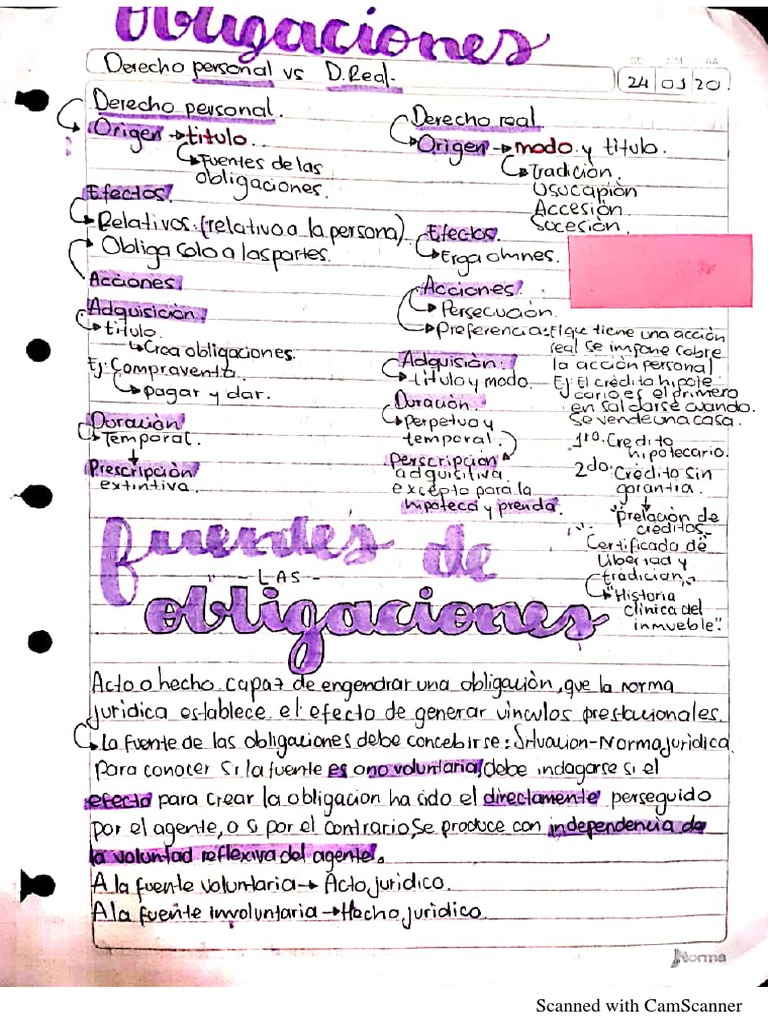 Obligaciones
Derecho personal vs D. Real.
24 03 20
Derecho personal.
Origen → titulo..
Fuentes de las
obligaciones.
Efectos.
Relativos. (relativo a la persona)
Obliga solo a las partes.
Acciones
Adquisición
titulo.
Crea obligaciones.
Ej: Compraventa.
pagar y dar.
Duración
Temporal.
Prescripción
extintiva.
Derecho real
Origen → modo y titulo.
Tradición.
Usucapión
Accesión.
Sucesión.
Efectos.
Erga omnes.
Acciones.
Persecución.
Preferencia: El que tiene una acción
real se impone sobre
la acción personal
Ej: El crédito hipote
cario es el primero
en saldarse cuando
se vende una casa.
1ro. Credito
hipotecario.
2do: Crédito sin
garantia.
"prelación de
créditos"
Certificado de
libertad y
tradición,
"Historia
clinica del
inmueble".
Adquisión.
titulo y modo.
Duración.
Perpetua y
temporal.
perscripción
adquisitiva
excepto para la
hipoteca y prenda.
fuendes de
- LAS -
obligaciones
Acto o hecho capaz de engendrar una obligación, que la norma
juridica establece el efecto de generar vinculos prestacionales.
La fuente de las obligaciones debe concebirse: Situacion-Norma juridica
Para conocer si la fuente es o no voluntaria, debe indagarse si el
efecto para crear la obligacion ha sido el directamente perseguido
por el agente, o si por el contrario, se produce con independencia de
la voluntad reflexiva del agente.
A la fuente voluntaria → Acto juridico.
A la fuente involuntaria → Hecho juridico.
Norma
Scanned with CamScanner